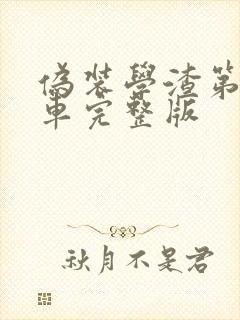 偽裝學渣第
車完整版
秋月不是君